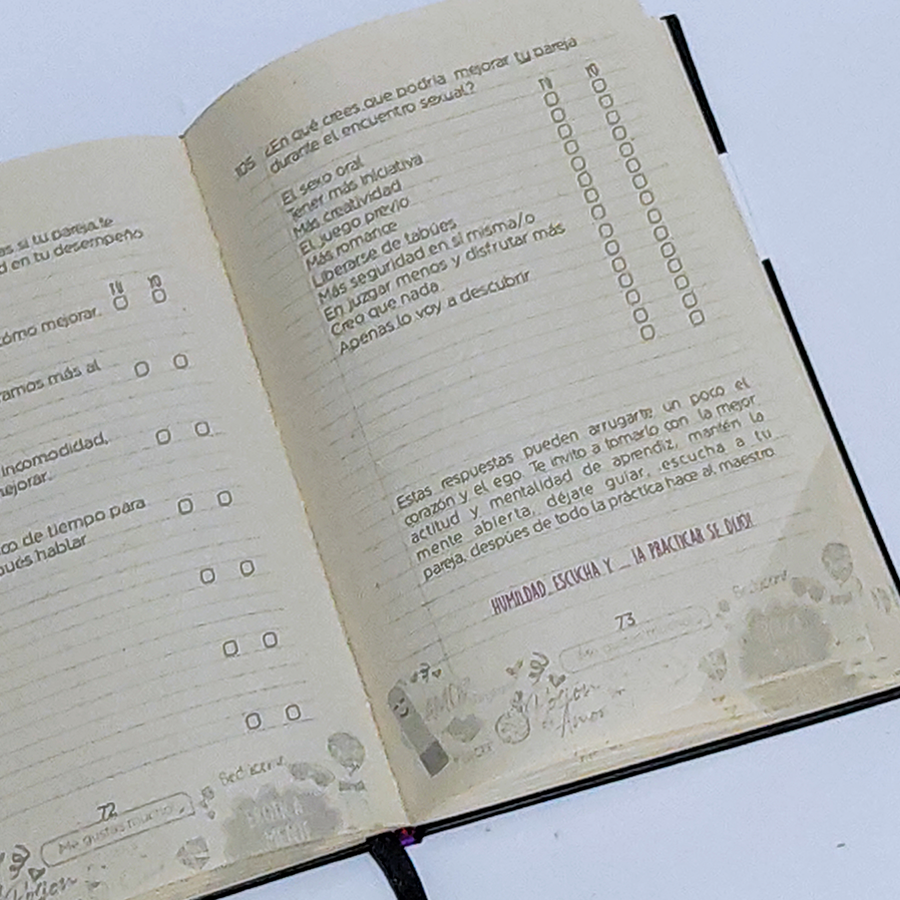 as si tu pareja te
d en tu desempeño
TÚ YO
cómo mejorar.
ramos más al
incomodidad,
mejorar.
co de tiempo para
pués hablar
72
Me gustas mucho
Sedúceme
105 ¿En qué crees que podría mejorar tu pareja
durante el encuentro sexual?
TÚ YO
El sexo oral
Tener más iniciativa
Más creatividad
El juego previo
Más romance
Liberarse de tabúes
Más seguridad en sí misma/o
En juzgar menos y disfrutar más
Creo que nada
Apenas lo voy a descubrir
Estas respuestas pueden arrugarte un poco el
corazón y el ego. Te invito a tomarlo con la mejor
actitud y mentalidad de aprendiz, mantén la
mente abierta, déjate guiar, escucha a tu
pareja, despúes de todo la práctica hace al maestro
HUMILDAD, ESCUCHA Y _ LA PRACTICAR SE DIJO!
73
Me gustas mucho
Sedúceme
AMOR
Amor